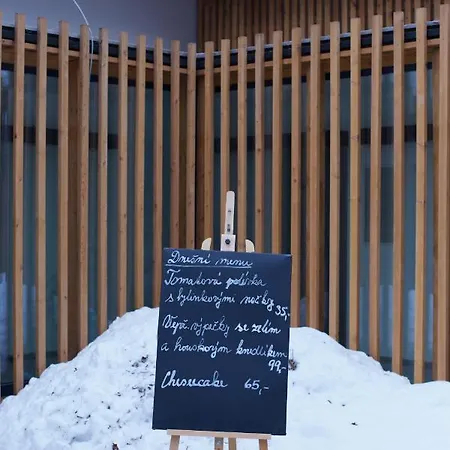 Dnešní menu
Tomatová polévka
s bylinkovými nočky 35,-
Vepř. výpečky se zelím
a houskovým knedlíkem
99,-
Cheesecake 65,-